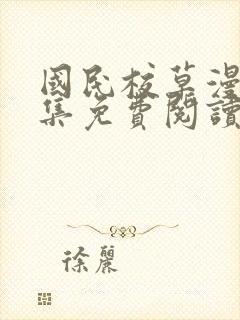 國民校草漫
集免費閱讀
徐麗